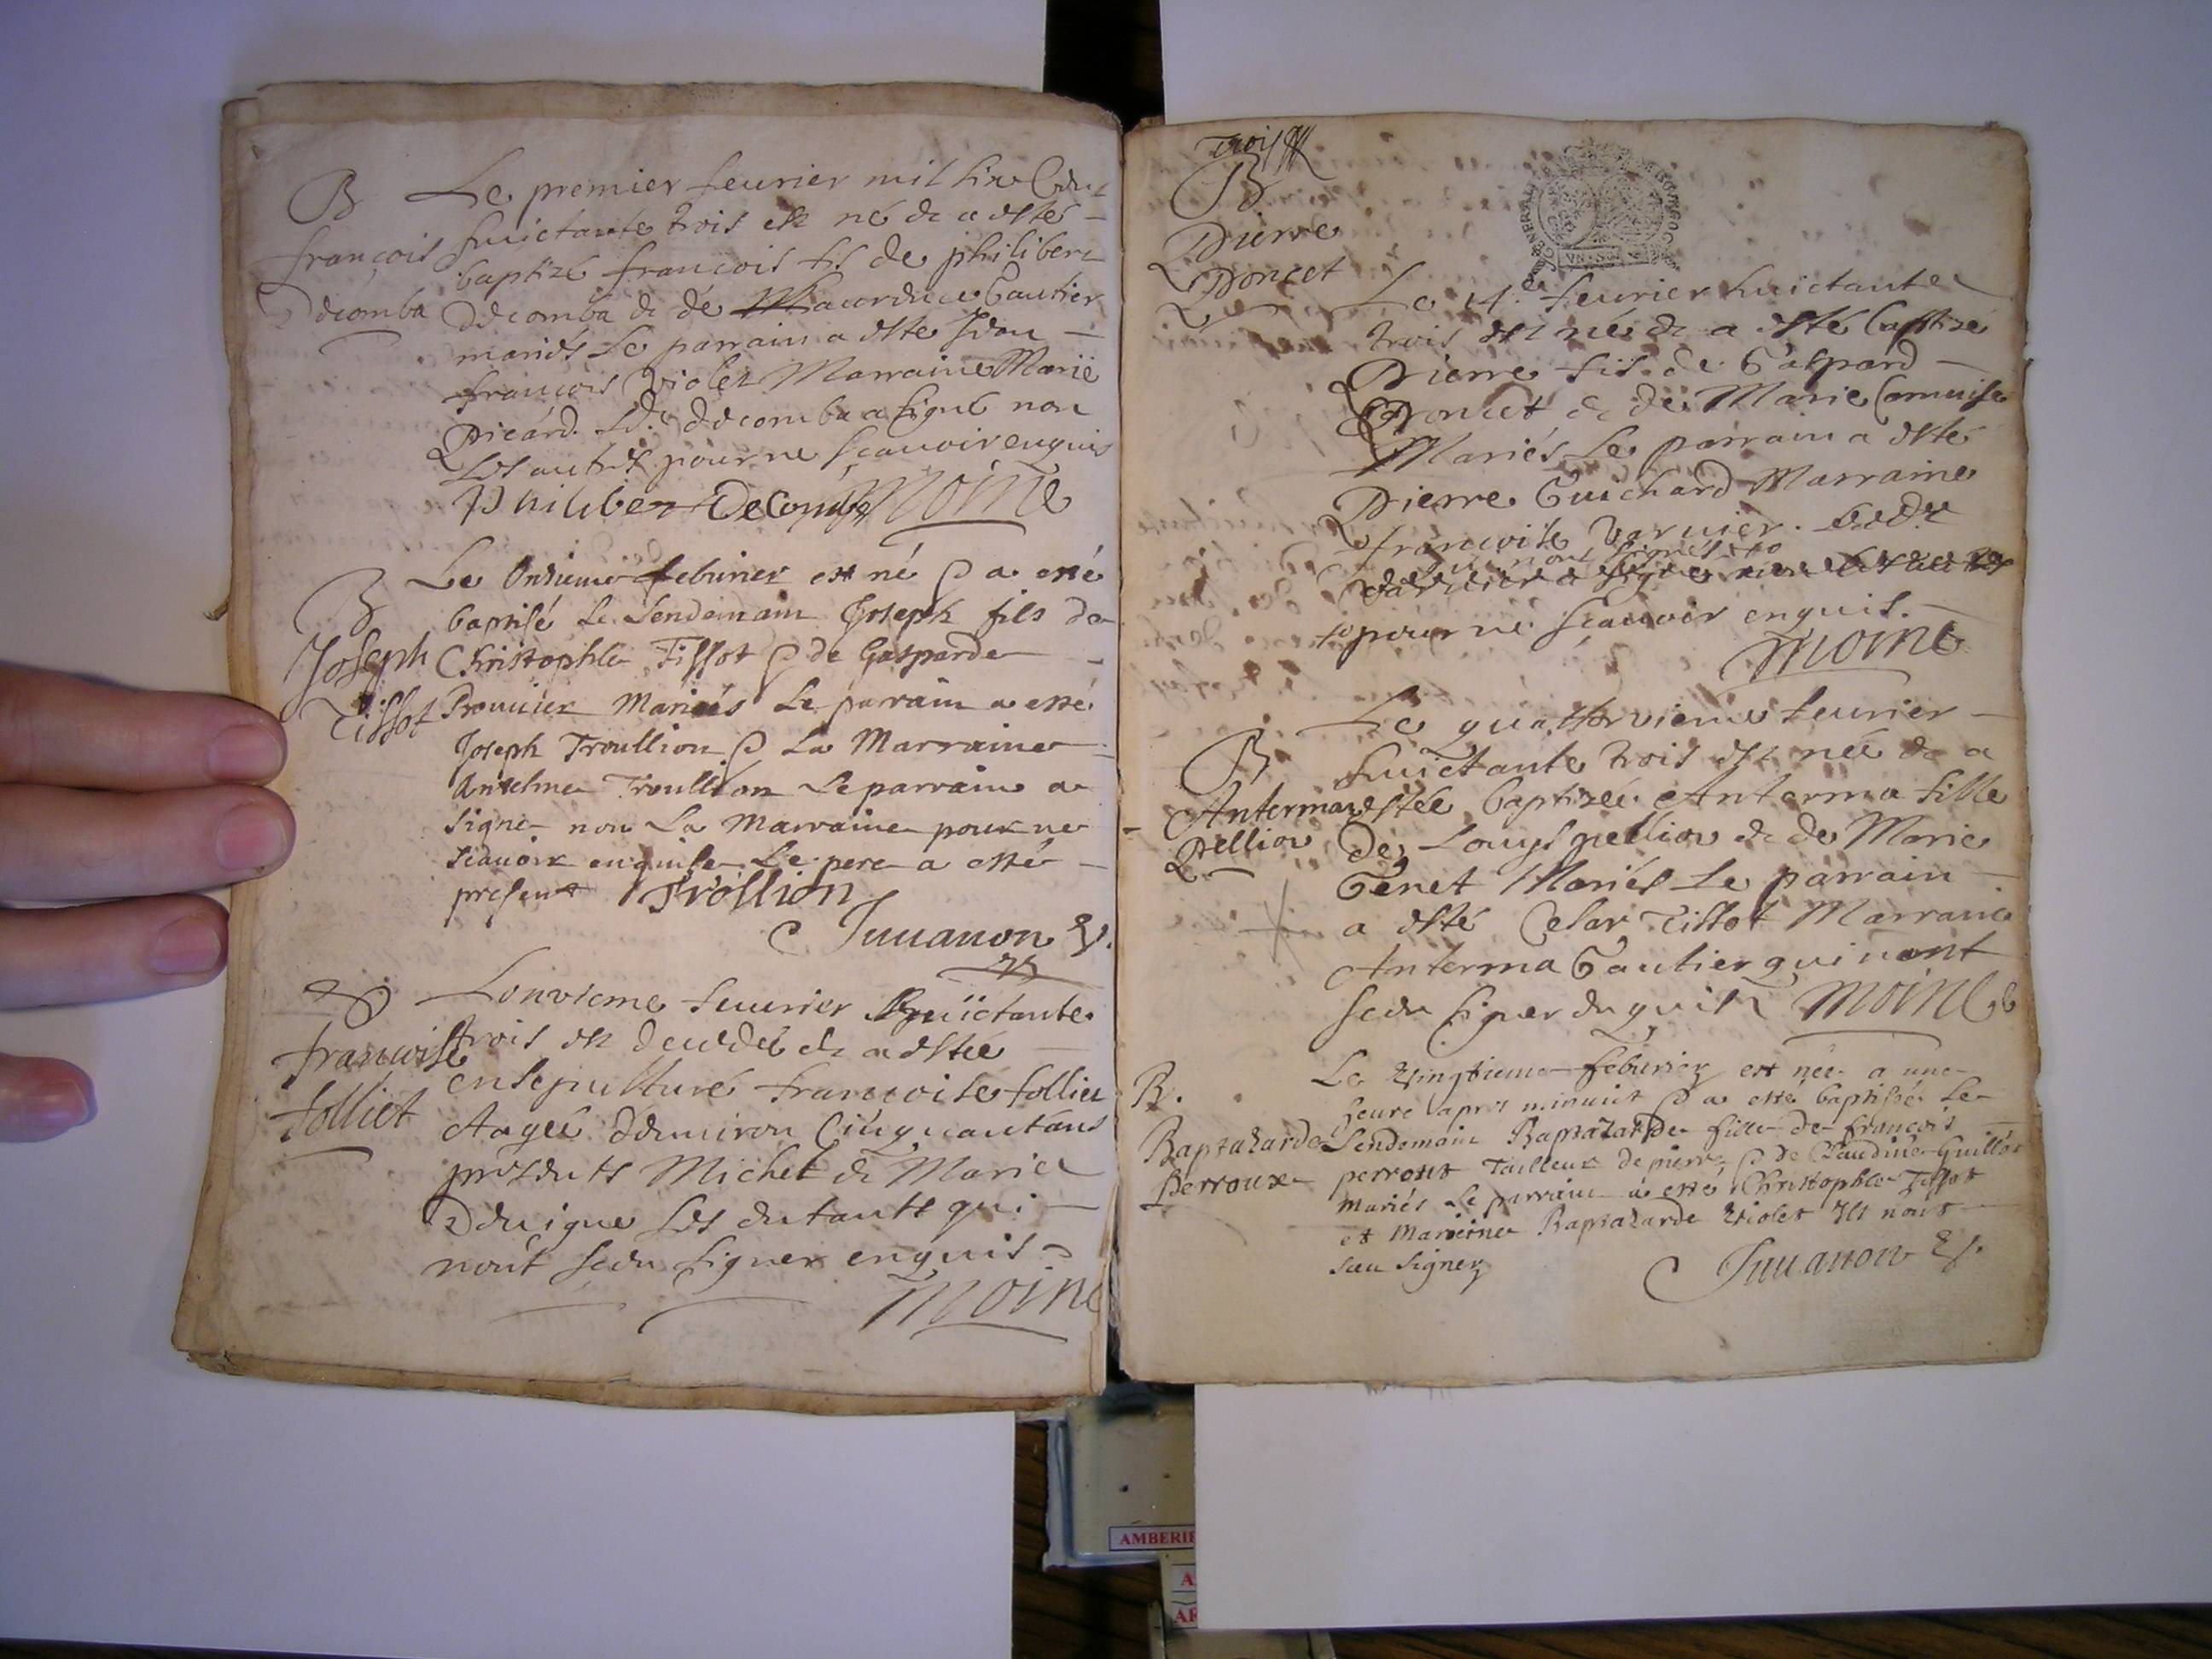 B
françois
Decomba
Le premier feurier mil six Cent
huictante trois est né & a esté
baptizé françois fils de philibert
Decomba & de Gautier
mariés Le parrain a este Jean
françois Violet Marraine Marië
Picard. Led. Decomba a signé non
Les autres pour ne sçauoir enquis
Philiber DeCombe Moine
B
Joseph
Tissot
Le Onsieme februier est né & a esté
baptisé Le Lendemain Joseph fils de
Christophle Tissot & de Gasparde
Bouuier Mariés Le parrain a esté
Joseph Troullion & La Marraine
Anthelme Troullion Le parrain a
signe non La Marraine pour ne
scauoir enquise Le pere a esté
present Trollion
C Juuanon V.
francoise
folliet
Lonzieme feurier huictante
trois est decedeé & a estée
ensepulturé francoise folliet
Aageé denuiron Cinquant ans
presents Michel & Marie
Deuigne ses enfants qui
nont sceu signer enquis
Moine
trois
B
Pierre
Poncet
GENERALI
Le 14.e feurier huictante
trois est né & a esté baptize
Pierre fils de Gaspard
Poncet & de Marie
Mariés Le parrain a esté
Pierre Guichard Marraine
francoise Varnier.
qui nont signés
pour ne sçauoir enquis.
Moine
B
Anterma
Pellion
Le quattorzieme feurier
huictante trois est neé & a
estée baptizeé Anterma fille
de Louys pellion & de Marie
Genet Mariés Le parrain
a esté Cesar Tissot Marraine
Anterma Gautier qui nont
sceu signer enquis Moine
B.
Baptazarde
Perroux
Le Vingtieme februier est neé a une
heure apres minuit & a esté baptiseé Le
Lendemain Baptazarde fille de françois
perrout Tailleur de pierre & de Claudine Guillot
mariés Le parrain a esté Christophle Tissot
et Mareine Baptazarde Violet Ils nont
sceu signer
C Juuanon V.
AMBERIE
A
AR